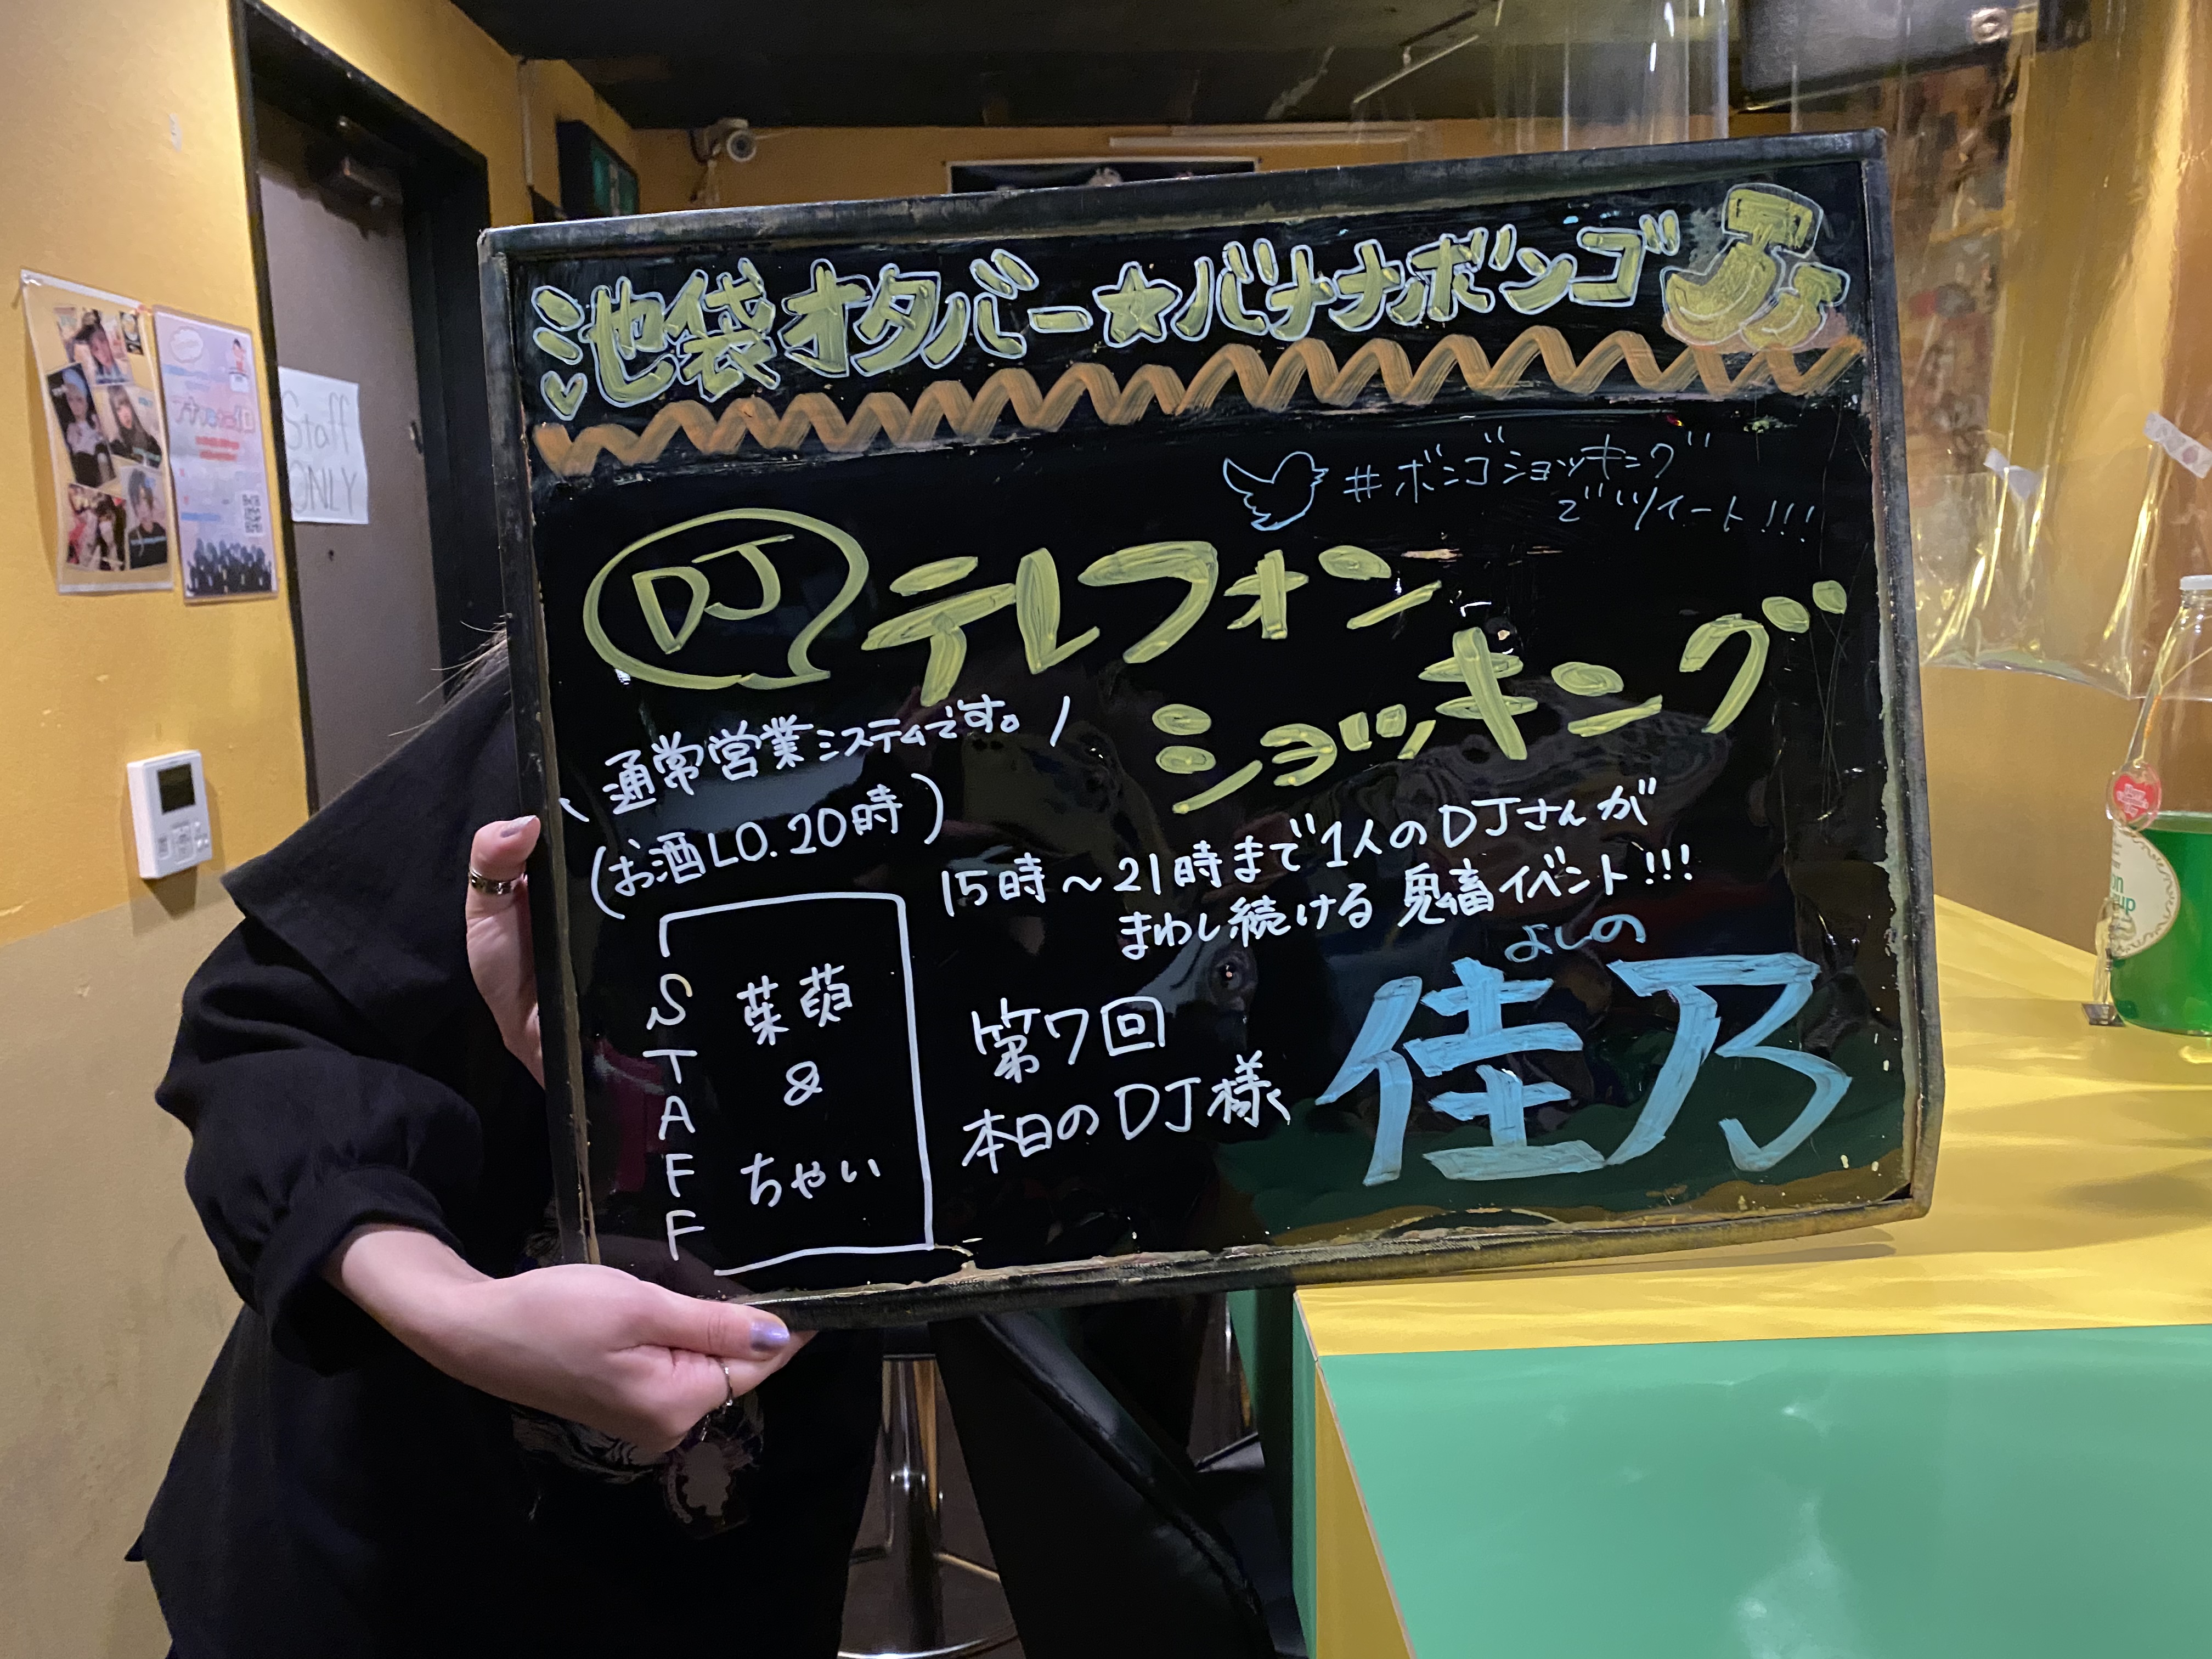 池袋オタバー☆バナナボンゴ
#ボンゴショッキング
でツイート!!!
DJ
テレフォン
ショッキング
\通常営業システムです。/
(お酒LO.20時)
15時~21時まで1人のDJさんが
まわし続ける鬼畜イベント!!!
STAFF
葉萌
&
ちゃい
第7回
本日のDJ様
よしの
佳乃
Staff
ONLY